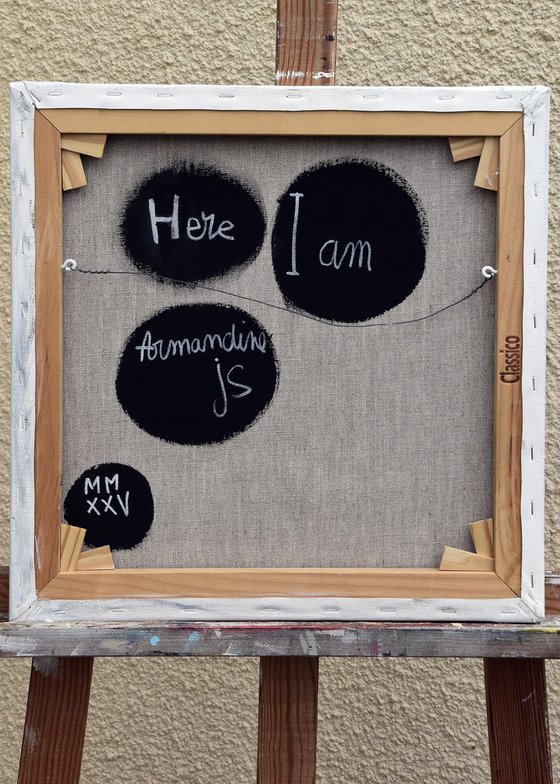 Here
I am
Armandine
js
MM
XXV
Classico